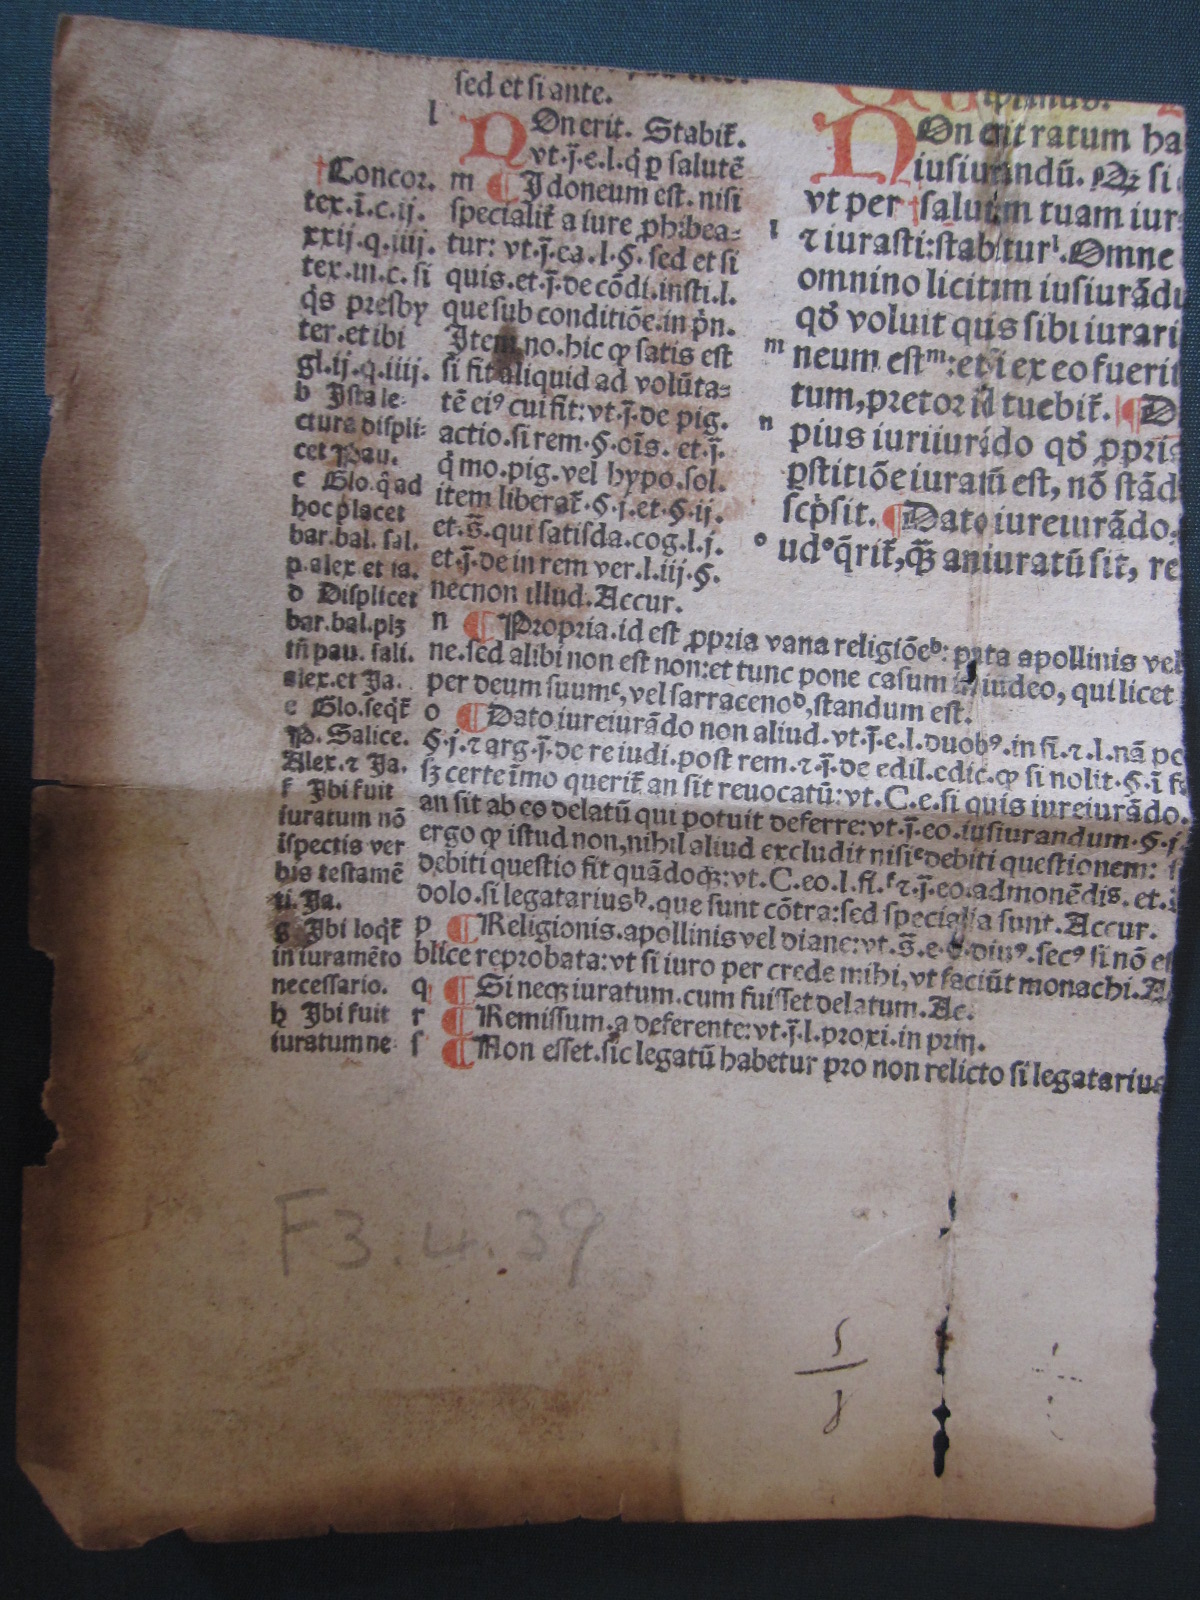 sed et si ante.
l NOn erit. Stabit̃.
vt.j̄.e.l.q̇ ꝑ salutē
m ¶ Idoneum est. nisi
specialit̃ a iure ꝓhibea=
tur: vt.j̄.ca.l.§. sed et si
quis.et.j̄.de cōdi.insti.l.
que sub conditiōe.in pṅ.
Item no.hic ꝙ satis est
si fit aliquid ad volūta=
tē eiꝰ cui fit: vt.j̄.de pig.
actio.si rem.§.oīs. et.j̄.
q̇ mo.pig.vel hypo.sol.
item liberat̃.§.j.et.§.ij.
et.s̄.qui satisda.cog.l.j.
et.j̄.de in rem ver.l.iij.§.
necnon illud. Accur.
†Concor.
tex.ī.c.ij.
xxij.q.iiij.
tex.in.c. si
q̇s presby
ter.et ibi
gl.ij.q.iiij.
b Ista le=
ctura displi=
cet Pau.
c Glo.q̄ ad
hoc placet
bar.bal. sal.
p.alex et ia.
d Displicet
bar.bal.plꝫ
tn̄ pau. sali.
alex.et Ja.
e Glo.seqt̃
P. Salice.
Alex.⁊ Ja.
f Ibi fuit
iuratum nō
īspectis ver
bis testamē
ti. Ja.
g Ibi loqt̃
in iuramēto
necessario.
h Ibi fuit
iuratum ne
NOn erit ratum ha
iusiurandū. Qꝫ si
vt per †salutem tuam iur
l ⁊ iurasti:stabiturˡ. Omne
omnino licitum iusiurādu
qđ voluit quis sibi iurari
m neum estᵐ:et si ex eo fueri
tum,pretor id tuebit̃. ¶ D
n pius iuriiurādo qđ ꝓpri
ꝑstitiōe iuratū est, nō stād
scṗsit. ¶ Dato iureiurādo.
o udᵒ q̄rit̃,ꝙꝫ an iuratū sit, re
n ¶ Propria.id est ꝓpria vana religiōeᵇ: puta apollinis vel
ne.sed alibi non est non:et tunc pone casum in iudeo, qui licet
per deum suumᶜ, vel sarracenoᵈ, standum est.
o ¶ Dato iureiurādo non aliud. vt.j̄.e.l.duobꝰ.in fi.⁊.l.nā po
§.j.⁊ arg.j̄.de re iudi.post rem.⁊.j̄.de edil.edic.ꝙ si nolit.§.ī f
sꝫ certe īmo querit̃ an sit reuocatū: vt.C.e.si quis iureiurādo.
an sit ab eo delatū qui potuit deferre: vt.j̄.eo.iusiurandum.§.j
ergo ꝙ istud non,nihil aliud excludit nisiᵉ debiti questionem:
debiti questio fit quādoqꝫ: vt.C.eo.l.fi.ᶠ ⁊.j̄.eo.admonēdis. et.
dolo.si legatariusʰ.que sunt cōtra:sed specialia sunt. Accur.
p ¶ Religionis.apollinis vel diane: vt.s̄.e.§.diuꝰ.secꝰ si nō e
blice reprobata: vt si iuro per crede mihi, vt faciūt monachi. A
q ¶ Si neqꝫ iuratum.cum fuisset delatum. Ac.
r ¶ Remissum.a deferente: vt.j̄.l.proxi.in prin.
s ¶ Non esset.sic legatū habetur pro non relicto si legatarius
F3.4.39